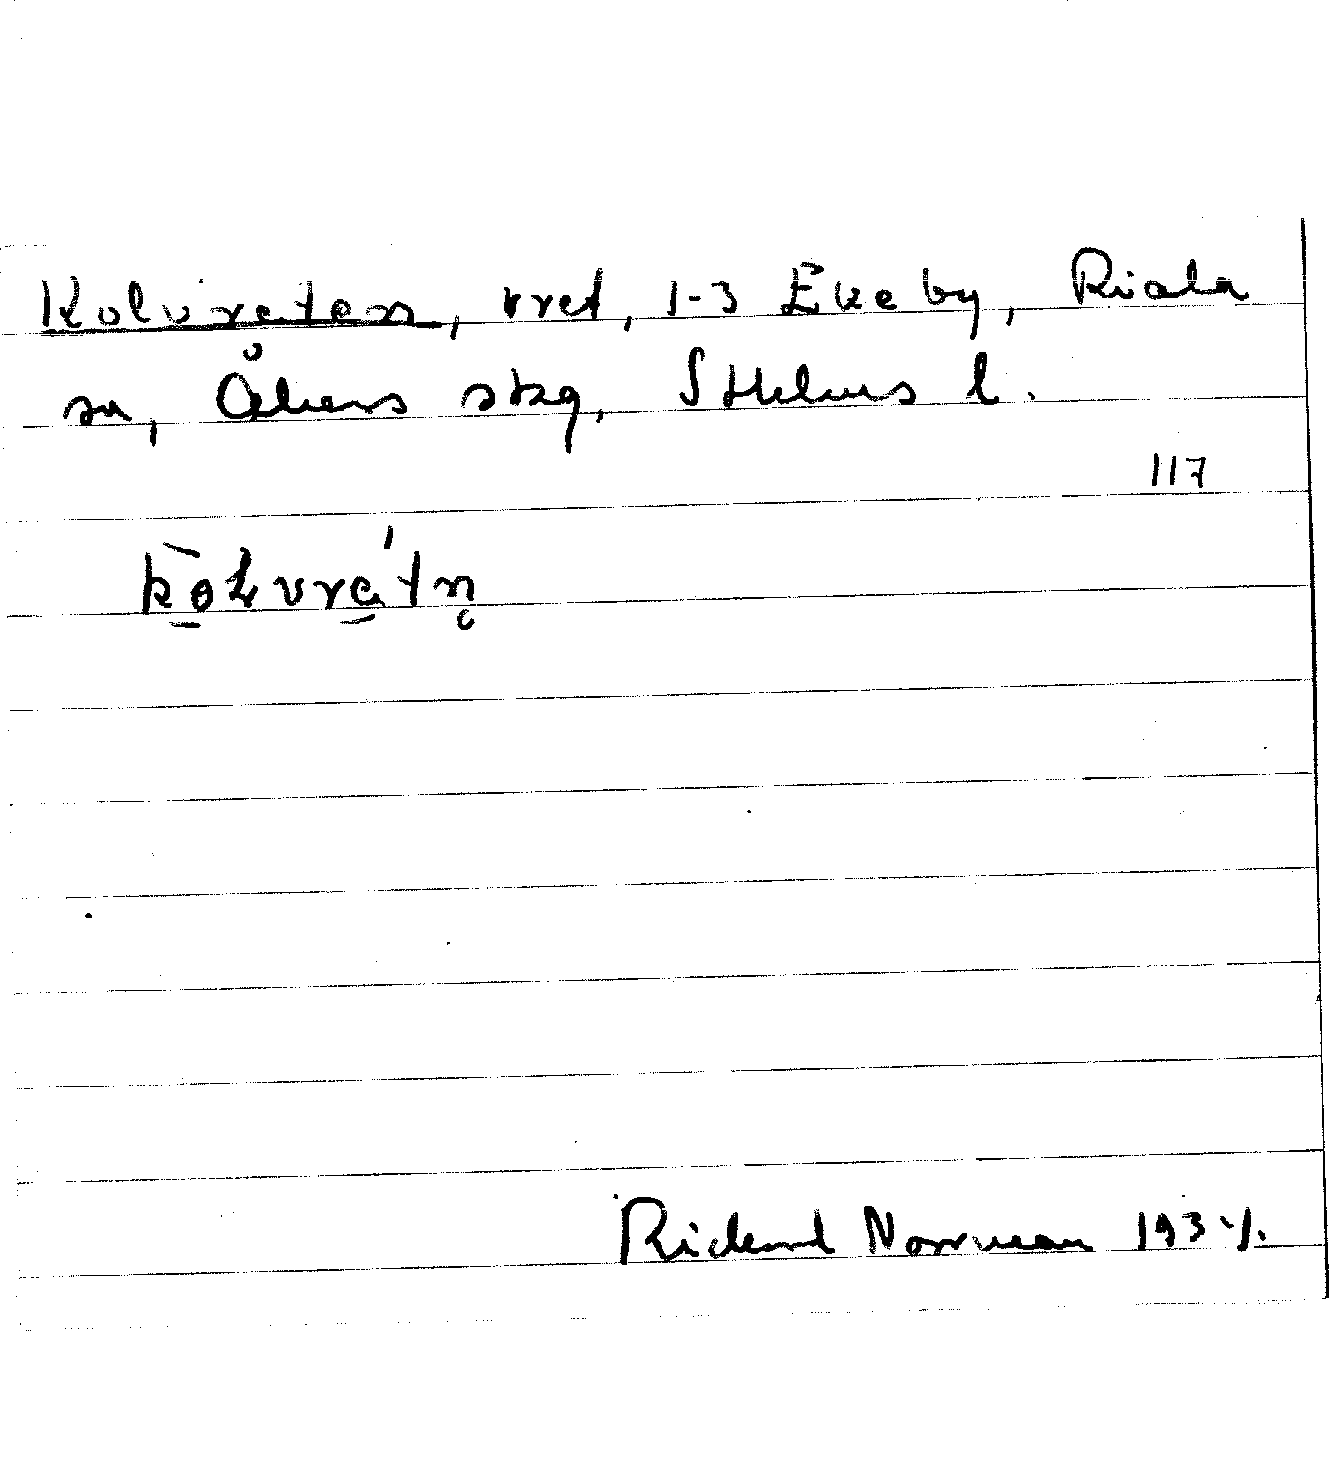 Kolvreten, vret, 1-3 Ekeby, Riala
sn, Åkers skg, Sthlms l.
117
Rickard Norrman 1934.